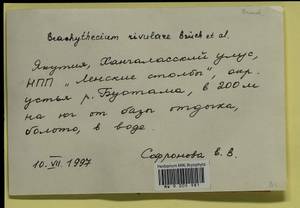 Brachythecium rivulare Bruch et al.
Якутия, Хангаласский улус,
НПП "Ленские столбы", окр.
устья р. Буотама, в 200 м
на юг от базы отдыха,
болото, в воде.
10. VII. 1997
Софронова Е. В.
Herbarium MW, Bryophyta